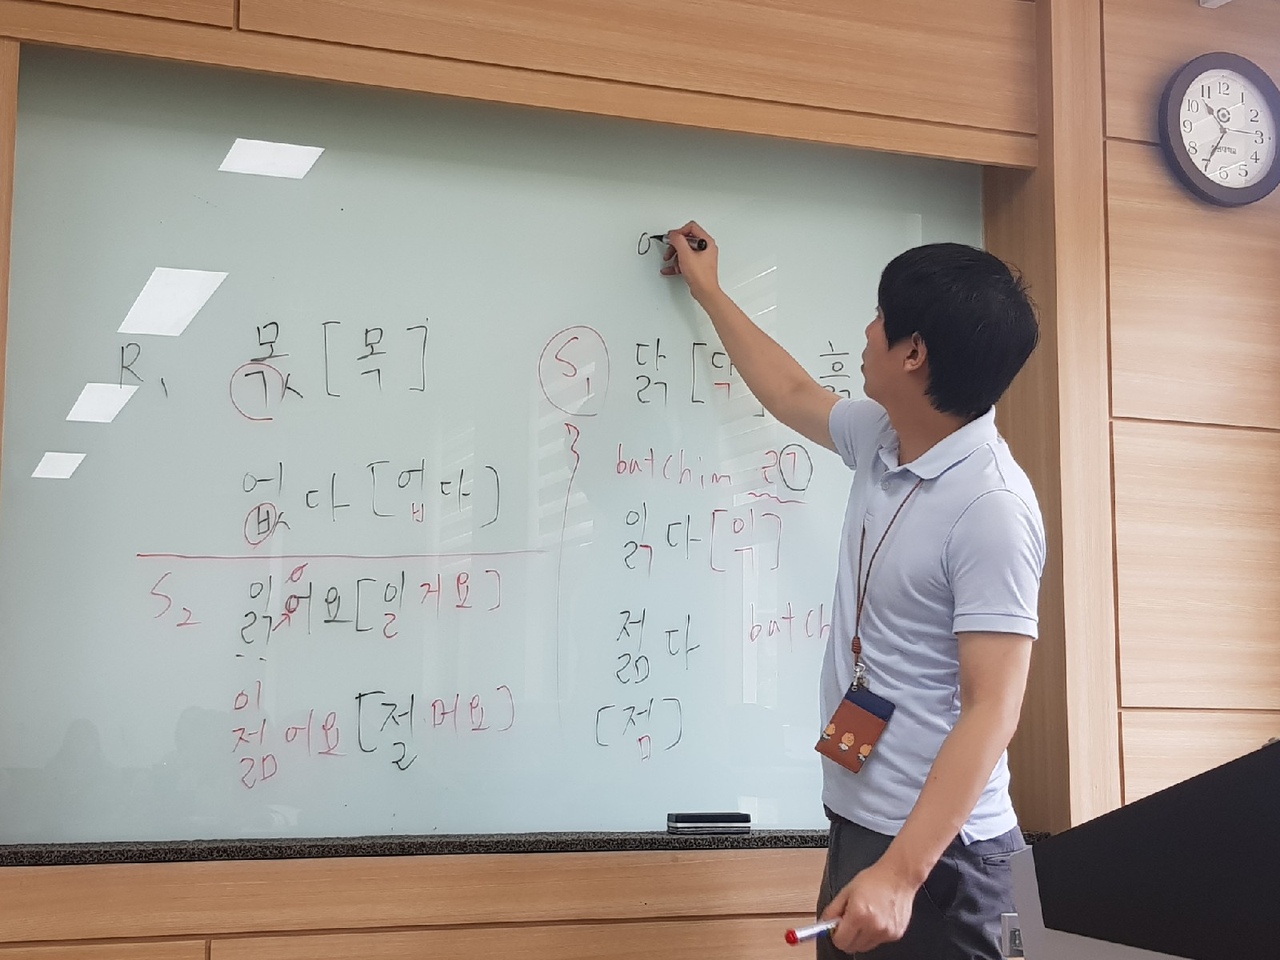 R₁ 몫 [목]
없다 [업다]
S₂ 읽어요 [일거요]
이
젊어요 [절머요]
S₁ 닭 [닥] 흙
batchim ㄹㄱ
읽다 [익]
젊다 batch
[점]
12
11 1
10 2
9 3
8 4
7 5
6